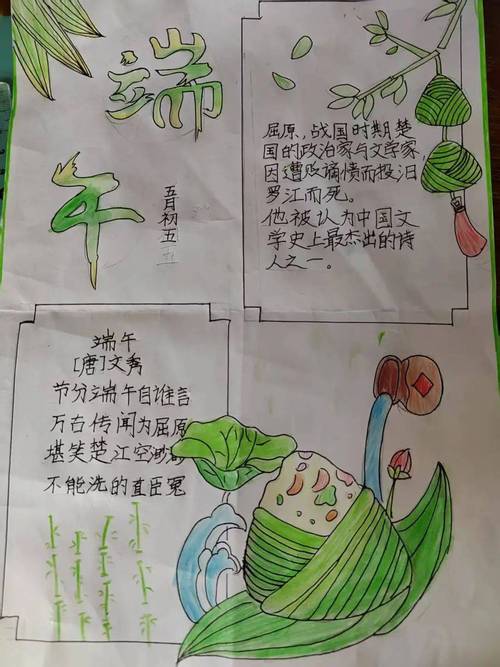 端午
五月初五
屈原,战国时期楚
国的政治家与文学家,
因遭败谪愤而投汨
罗江而死。
他被认为中国文
学史上最杰出的诗
人之一。
端午
[唐]文秀
节分端午自谁言
万右传闻为屈原
堪笑楚江空渺
不能洗的直臣冤